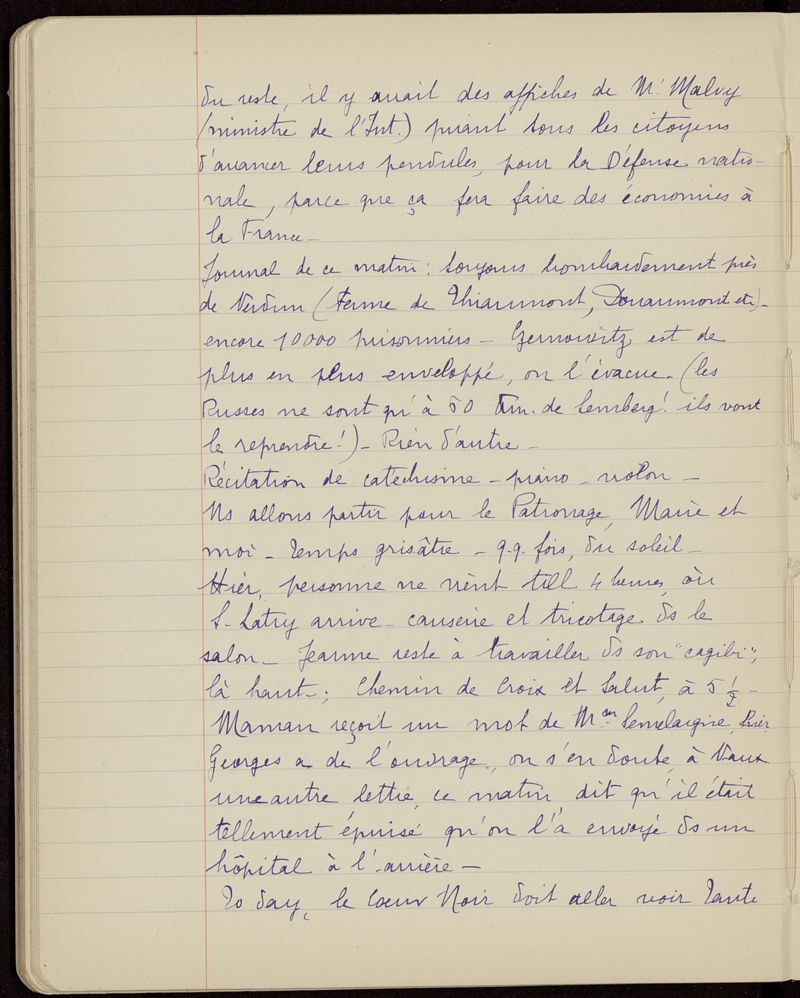 du reste, il y avait des affiches de Mr Malvy
(ministre de l'Int.) priant tous les citoyens
d'avancer leurs pendules, pour la Défense natio-
nale, parce que ça fera faire des économies à
la France -
Journal de ce matin : toujours bombardement près
de Verdun (Ferme de Thiaumont, Douaumont etc) -
encore 10000 prisonniers - Czernowitz est de
plus en plus enveloppé, on l'évacue - (les
Russes ne sont qu'à 50 km. de Lemberg ! ils vont
le reprendre !) - Rien d'autre -
Récitation de catéchisme - piano - violon -
Ns allons partir pour le Patronage, Marie et
moi - Temps grisâtre - q.q. fois, du soleil -
Hier, personne ne vient till 4 heures, où
S. Latry arrive - causerie et tricotage ds le
salon - Jeanne reste à travailler ds son "cagibi",
là haut - ; Chemin de Croix et Salut, à 5 ½ -
Maman reçoit un mot de Mme Lemelaigne, hier,
Georges a de l'ouvrage, on s'en doute, à Vaux
une autre lettre, ce matin, dit qu'il était
tellement épuisé qu'on l'a envoyé ds un
hôpital à l'arrière -
To day, le Cœur Noir doit aller voir Tante